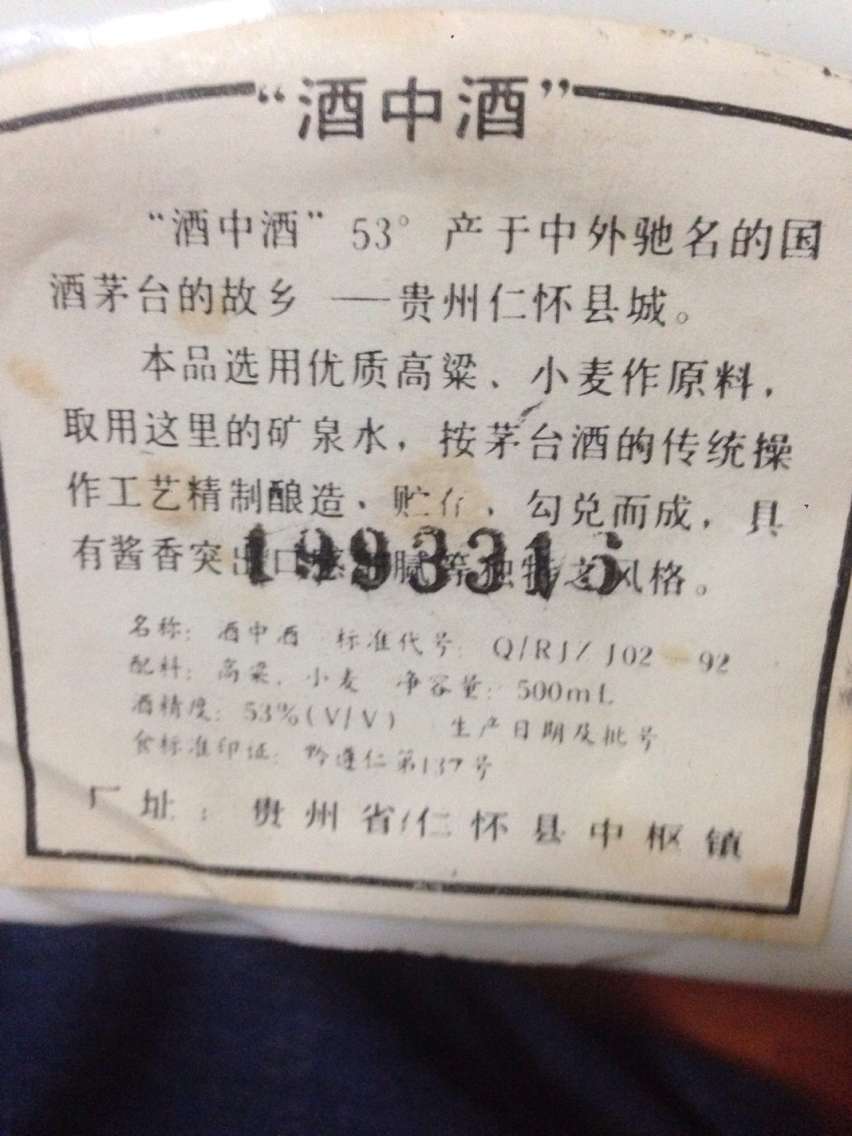 “酒中酒”
“酒中酒”53°产于中外驰名的国
酒茅台的故乡——贵州仁怀县城。
本品选用优质高粱、小麦作原料，
取用这里的矿泉水，按茅台酒的传统操
作工艺精制酿造、贮存，勾兑而成，具
有酱香突出口感 腻等独特之风格。
1993315
名称：酒中酒 标准代号：Q/RJZ J02-92
配料：高粱、小麦 净容量：500mL
酒精度：53%(V/V) 生产日期及批号
食标准印证：黔遵仁第137号
厂址：贵州省仁怀县中枢镇